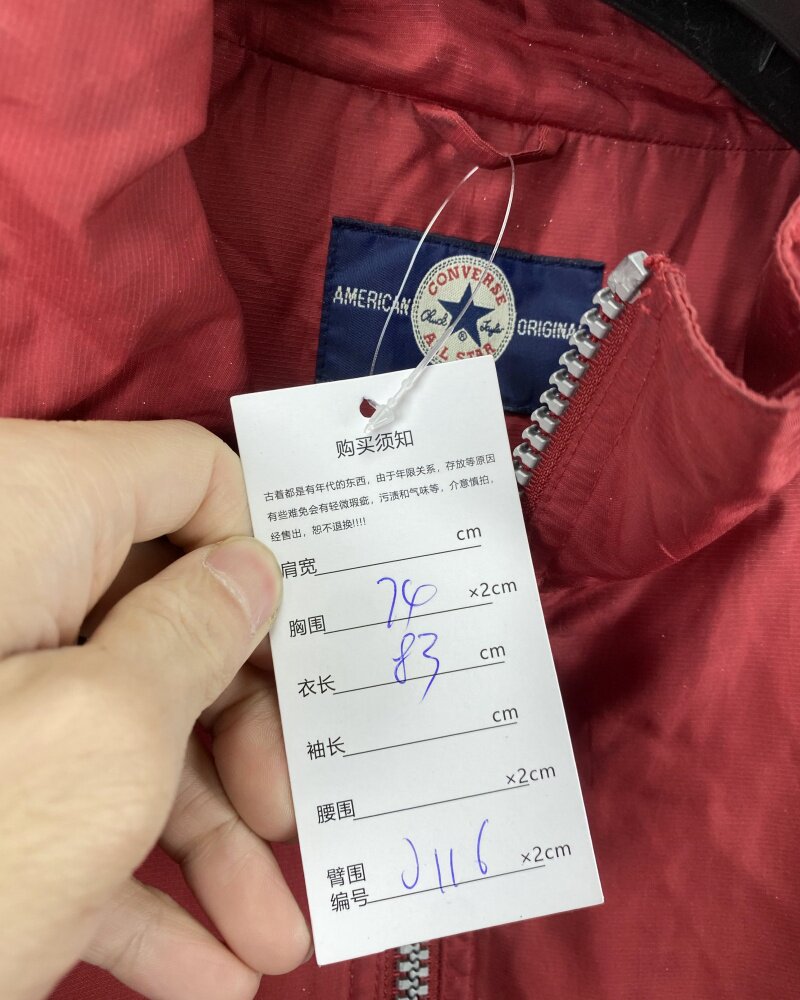 AMERICAN
CONVERSE
Chuck Taylor
®
ALL STAR
ORIGINA
购买须知
古着都是有年代的东西，由于年限关系，存放等原因
有些难免会有轻微瑕疵，污渍和气味等，介意慎拍，
经售出，恕不退换!!!!
肩宽 cm
胸围 74 ×2cm
衣长 83 cm
袖长 cm
腰围 ×2cm
臂围 ×2cm
编号 0116